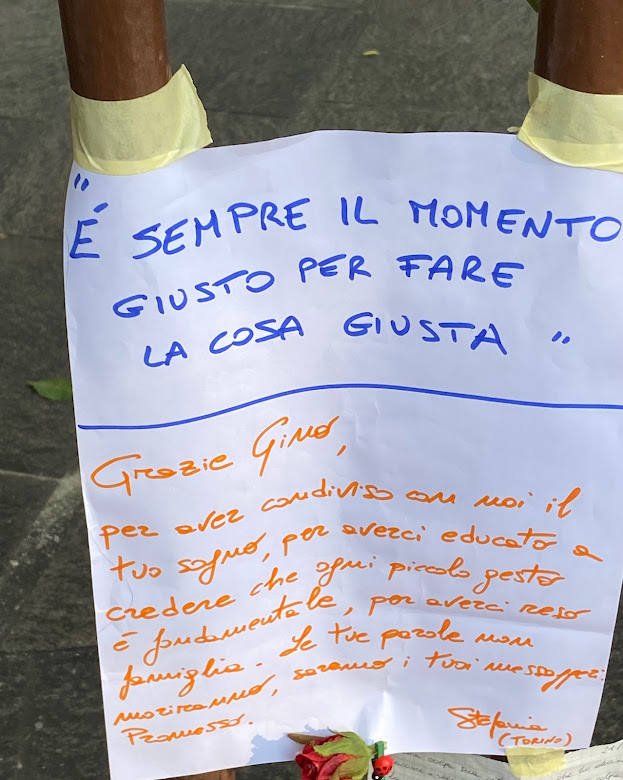 "É SEMPRE IL MOMENTO
GIUSTO PER FARE
LA COSA GIUSTA"
Grazie Gino,
per aver condiviso con noi il
tuo sogno, per averci educato a
credere che ogni piccolo gesto
è fondamentale, per averci reso
famiglia. Le tue parole non
moriranno, saranno i tuoi messaggeri:
Promesso.
Stefania
(TORINO)